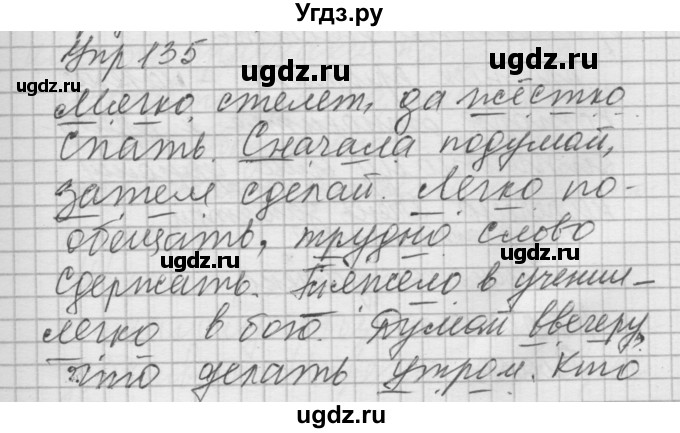 Угдз.ру
Упр 135
ugdz.ru ugdz.ru
Мягко стелет, да жёстко
спать. Сначала подумай,
ugdz.ru
затем сделай. Легко по-
обещать, трудно слово
ugdz.ru ugdz.ru
сдержать. Тяжело в учении_
легко в бою. Думай ввечеру,
ugdz.ru
что делать утром. Кто
ugdz.ru